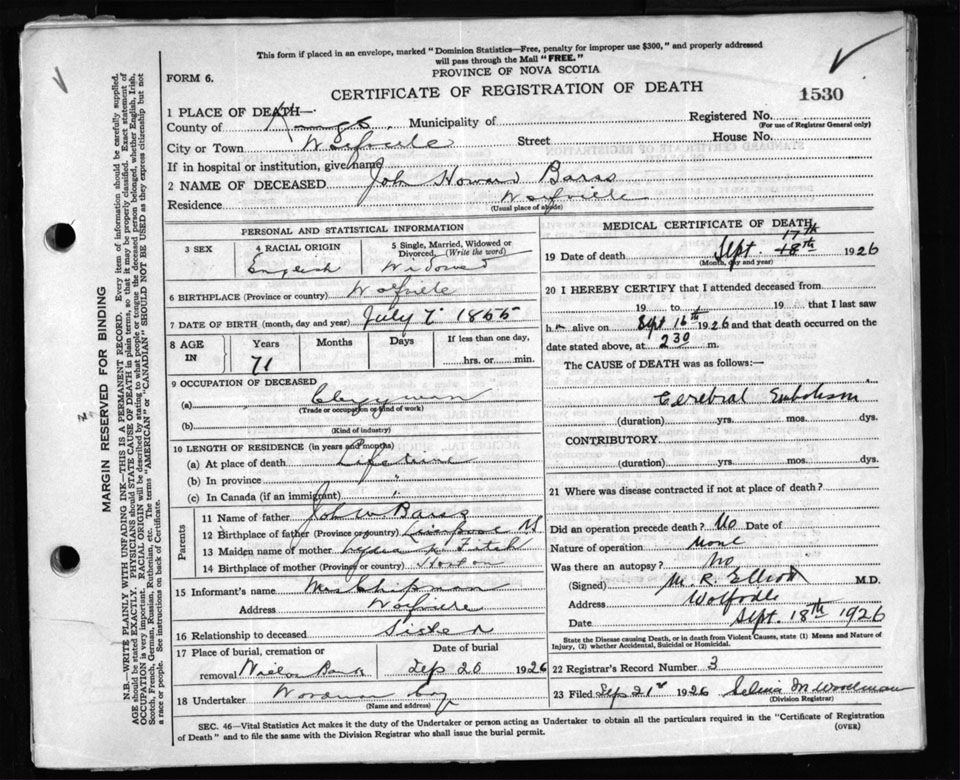 This form if placed in an envelope, marked "Dominion Statistics—Free, penalty for improper use $300," and properly addressed
will pass through the Mail "FREE."
FORM 6.
PROVINCE OF NOVA SCOTIA
CERTIFICATE OF REGISTRATION OF DEATH
1530
1 PLACE OF DEATH—
County of Kings Municipality of Registered No.
(For use of Registrar General only)
City or Town Wolfville Street House No.
If in hospital or institution, give name
2 NAME OF DECEASED John Howard Barss
Residence Wolfville
(Usual place of abode)
MARGIN RESERVED FOR BINDING
N.B.—WRITE PLAINLY WITH UNFADING INK—THIS IS A PERMANENT RECORD. Every item of information should be carefully supplied.
AGE should be stated EXACTLY. PHYSICIANS should STATE CAUSE OF DEATH in plain terms, so that it may be properly classified. Exact statement of
OCCUPATION is very important. RACIAL ORIGIN will be described by stating to what people or tongue the deceased person belonged, whether English, Irish,
Scotch, French, German, Russian, Ruthenian, etc. The terms "AMERICAN" or "CANADIAN" SHOULD NOT BE USED as they express citizenship but not
a race or people. See instructions on back of Certificate.
PERSONAL AND STATISTICAL INFORMATION
3 SEX
4 RACIAL ORIGIN
English
5 Single, Married, Widowed or
Divorced. (Write the word)
Widowed
6 BIRTHPLACE (Province or country) Wolfville
7 DATE OF BIRTH (month, day and year) July 7 1855
8 AGE
IN
Years
71
Months
Days
If less than one day,
hrs. or min.
9 OCCUPATION OF DECEASED
(a) Clergyman
(Trade or occupation or kind of work)
(b)
(Kind of industry)
10 LENGTH OF RESIDENCE (in years and months)
(a) At place of death Lifetime
(b) In province "
(c) In Canada (if an immigrant) "
Parents
11 Name of father John W Barss
12 Birthplace of father (Province or country) Liverpool NS
13 Maiden name of mother Lydia K. Fitch
14 Birthplace of mother (Province or country)
15 Informant's name Mrs Shipman
Address Wolfville
16 Relationship to deceased Sister
17 Place of burial, cremation or
removal
Date of burial
Sep 20 1926
18 Undertaker Woodman Coy
(Name and address)
MEDICAL CERTIFICATE OF DEATH
17th
19 Date of death Sept. 18th 1926
(Month, day and year)
20 I HEREBY CERTIFY that I attended deceased from
19 to 19 that I last saw
h alive on Sept 16th 1926 and that death occurred on the
date stated above, at 230 m.
The CAUSE of DEATH was as follows:—
Cerebral Embolism
(duration) yrs. mos. dys.
CONTRIBUTORY
(duration) yrs. mos. dys.
21 Where was disease contracted if not at place of death?
Did an operation precede death? No Date of
Nature of operation None
Was there an autopsy? No
(Signed) M. R. Elliott M.D.
Address Wolfville
Date Sept. 18th 1926
State the Disease causing Death, or in death from Violent Causes, state (1) Means and Nature of
Injury, (2) whether Accidental, Suicidal or Homicidal.
22 Registrar's Record Number 3
23 Filed Sep 21st 1926 Selina M Woodman
(Division Registrar)
SEC. 46—Vital Statistics Act makes it the duty of the Undertaker or person acting as Undertaker to obtain all the particulars required in the "Certificate of Registration
of Death" and to file the same with the Division Registrar who shall issue the burial permit.
(OVER)